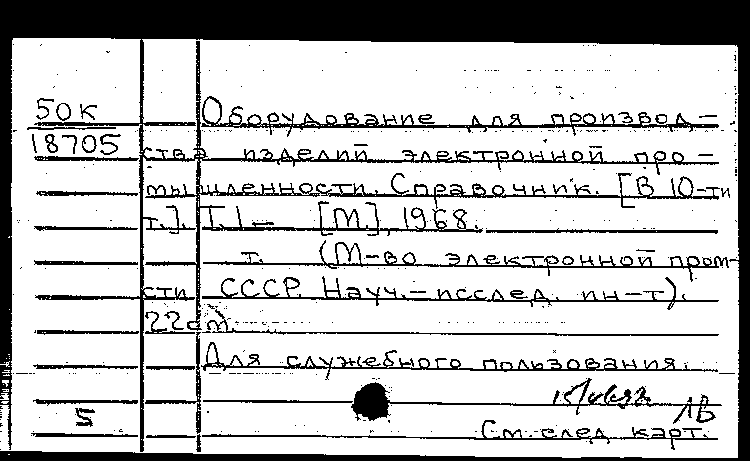 50К Оборудование для производ-
18705 ства изделий электронной про-
мышленности. Справочник. [В 10-ти
т.]. Т.1- [М.], 1968.
т. (М-во электронной пром-
сти СССР. Науч.-исслед. ин-т).
22см.
Для служебного пользования.
5 ЛВ
См. след. карт.